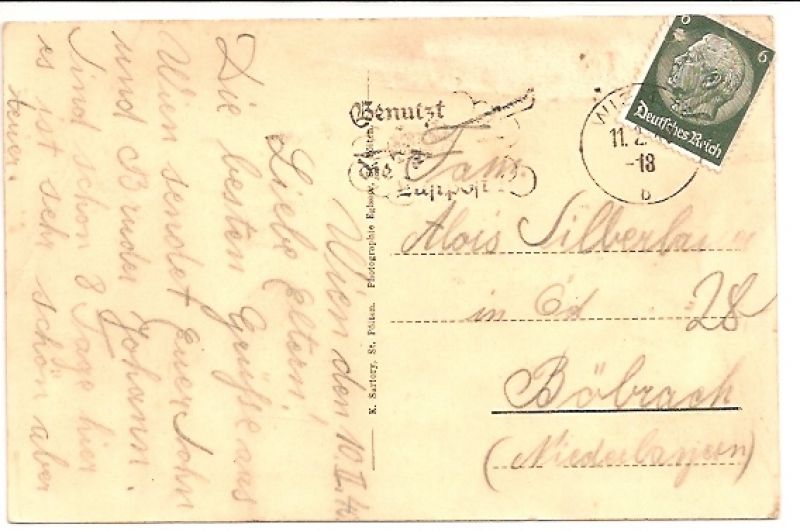 Wien den 10.II.4
Liebe Eltern!
Die besten Grüße aus
Wien sendet Euer Sohn
und Bruder Johann.
Sind schon 8 Tage hier
es ist sehr schön aber
teuer.
K. Sartory, St. Pölten. Photographie
Benutzt
die
Luftpost
11.2.
-18
b
6
6
Deutsches Reich
Fam.
Alois Silberbauer
in Öd 28
Böbrach
(Niederbayern)